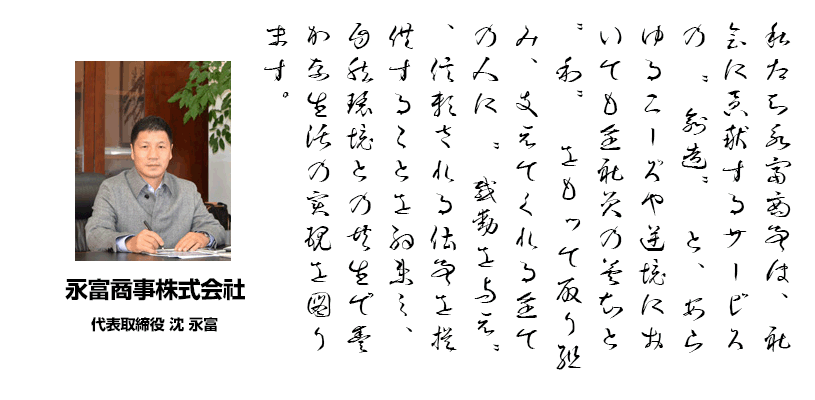 私たち永富商事は、社
会に貢献するサービス
の〝創造〟と、あら
ゆるニーズや逆境にお
いても全社員の英知と
〝和〟をもって取り組
み、支えてくれる全て
の人に〝感動を与え〟
、信頼される仕事を提
供することを約束し、
自然環境との共生で豊
かな生活の実現を図り
ます。
永富商事株式会社
代表取締役 沈 永富